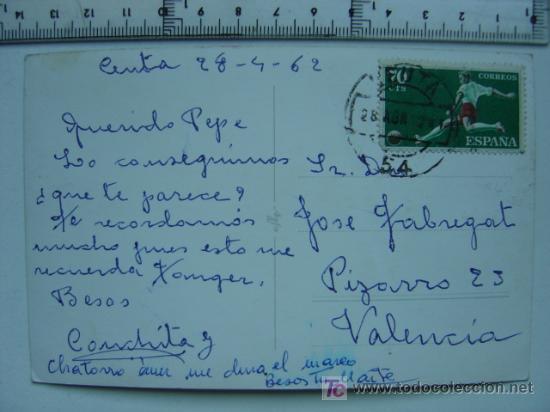 Ceuta 28-4-62
Querido Pepe
Lo conseguimos
¿que te parece?
Te recordamos
mucho pues esto me
recuerda Tanger.
Besos
Conchita y
me dura el mareo
Besos
Sr. Don
Jose Fabregat
Pizarro 23
Valencia
70
CTS
CORREOS
ESPAÑA
28 ABR
54
TC
todocoleccion.net
0 1 2 3 4 5 6 7 8 9 10 11 12 13 14